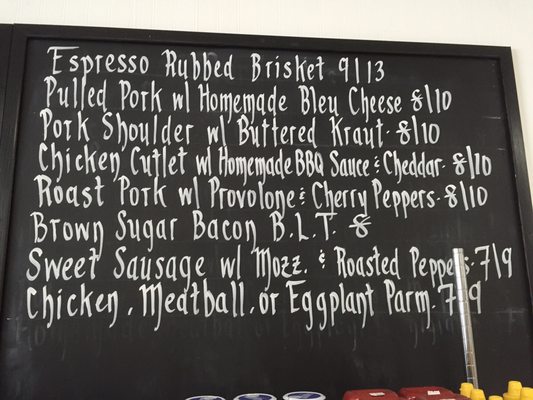 Espresso Rubbed Brisket 9/13
Pulled Pork w/ Homemade Bleu Cheese 8/10
Pork Shoulder w/ Buttered Kraut · 8/10
Chicken Cutlet w/ Homemade BBQ Sauce & Cheddar · 8/10
Roast Pork w/ Provolone & Cherry Peppers · 8/10
Brown Sugar Bacon B.L.T. 8
Sweet Sausage w/ Mozz. & Roasted Peppers · 7/9
Chicken, Meatball, or Eggplant Parm. 7/9